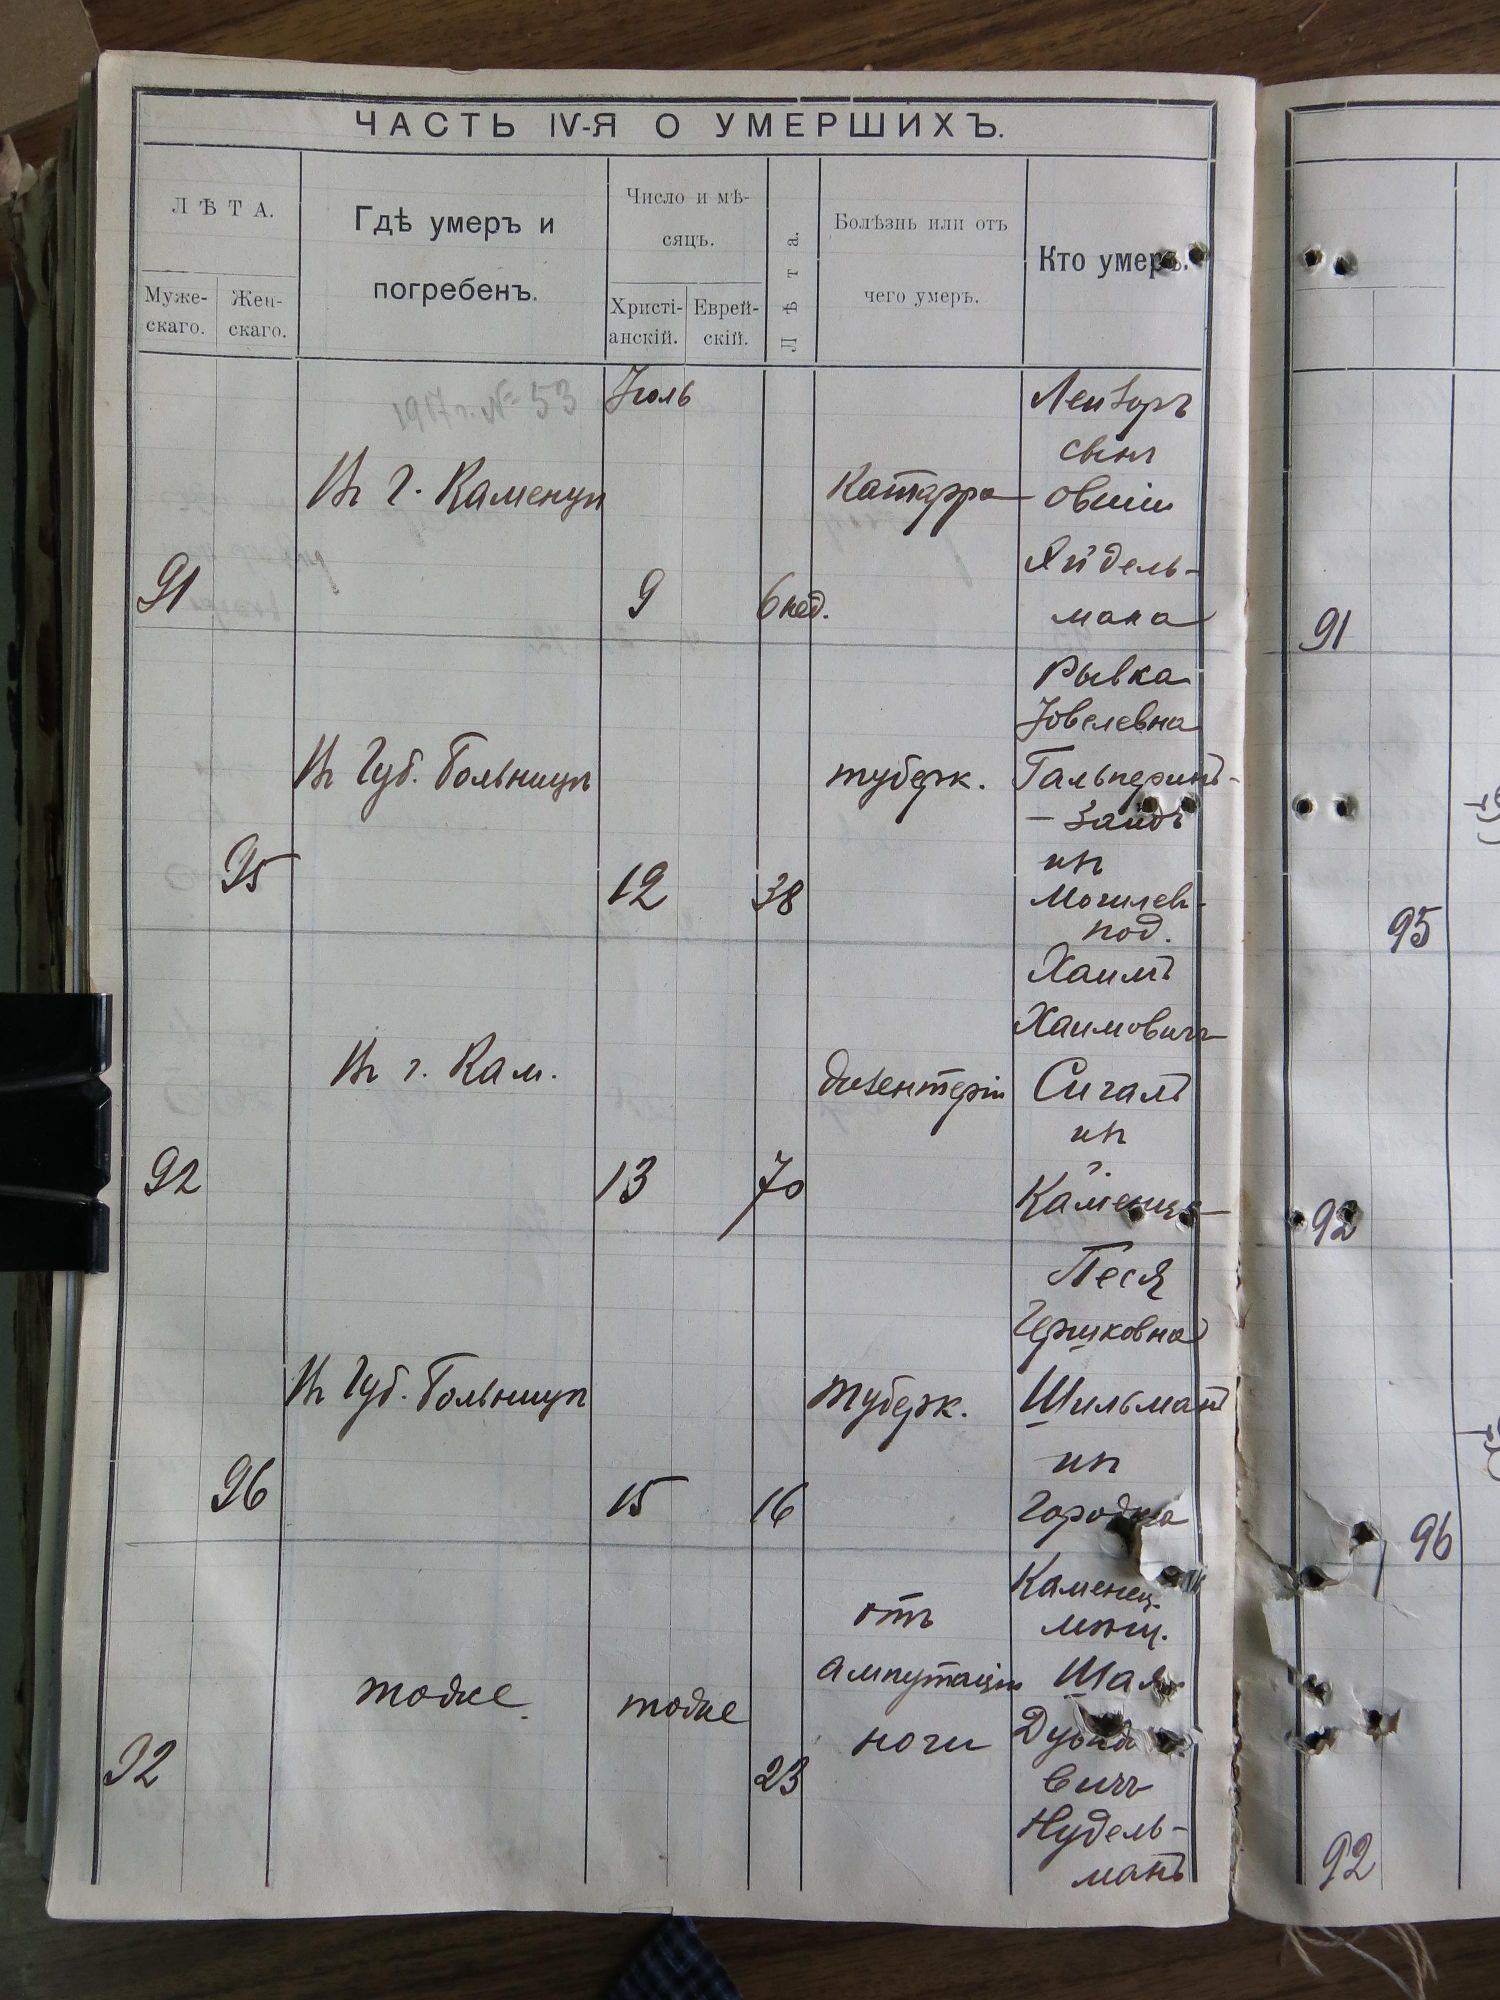 ЧАСТЬ IV-Я О УМЕРШИХЪ.
ЛѢТА.
Муже-
скаго.
Жен-
скаго.
Гдѣ умеръ и
погребенъ.
Число и мѣ-
сяцъ.
Христі-
анскій.
Еврей-
скій.
Лѣта.
Болѣзнь или отъ
чего умеръ.
Кто умеръ.
1917 г. № 53
Іюль
91
Въ г. Каменцѣ
9
6 нед.
Катарра
Лейзоръ
сынъ
Овшіи
Яйдель-
мана
95
Въ Губ. Больницѣ
12
38
туберк.
Рывка
Іовелевна
Гальперинъ-
-Зайдъ
из
Могилев-
под.
92
Въ г. Кам.
13
70
дизентеріи
Хаимъ
Хаимовичъ
Сигалъ
из
Каменца
96
Въ Губ. Больницѣ
15
16
туберк.
Песя
Гершковна
Шильманъ
из
Городка
92
тоже
тоже
23
отъ
ампутаціи
ноги
Каменец.
мѣщ.
Шая
вичъ
Нудель-
манъ
91
95
92
96
92